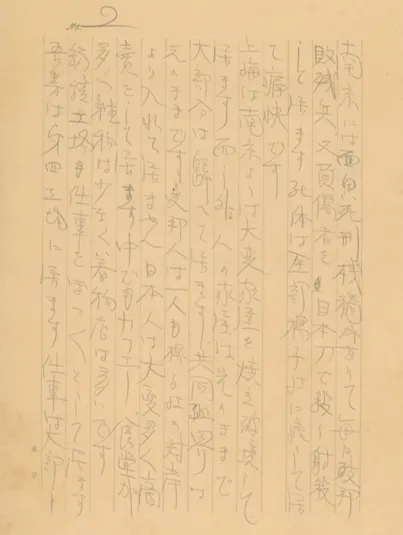 No. 2
南京には面白い死刑桟橋がありて毎日支那
敗残兵又負傷者を日本刀で殺し射殺
して居ます 死体は全部揚子江に流して居
て痛快です
上海は南京よりは大変家屋を焼き破壊して
居ます 而し外人の家屋は元のままで
大部分は帰へて居ます 共同租界は
元のままです 支那人は一人も揚子江の対岸
より入れて居ません 日本人は大変多く商
売をして居ます 中でもカフェー、食堂が
多く雑物は少なく着物店は多いです
紡績工場も仕事をぼつぼつとして居ます
吾等は第四工場に居ます 仕事は大部